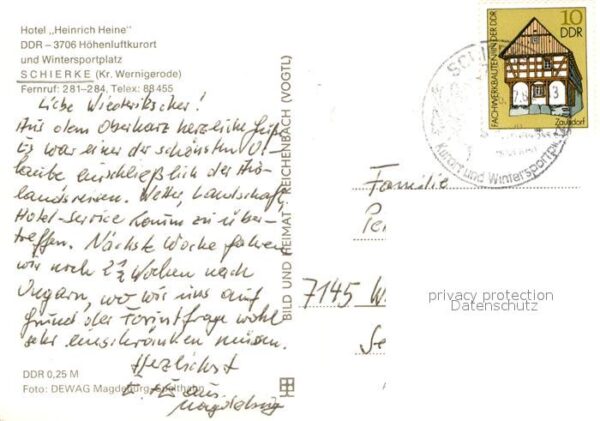 Hotel „Heinrich Heine"
DDR – 3706 Höhenluftkurort
und Wintersportplatz
SCHIERKE (Kr. Wernigerode)
Fernruf: 281–284, Telex: 88 455
Liebe Wiederitscher!
Aus dem Oberharz herzliche Grüße
Es war einer der schönsten Ur-
laube einschließlich der Aus-
landsreisen. Wetter, Landschaft,
Hotel-Service kaum zu über-
treffen. Nächste Woche fahren
wir noch 2½ Wochen nach
Ungarn, wo wir uns auf
Grund der Forintfrage wohl
sehr einschränken müssen.
Herzlichst
aus
Magdeburg
DDR 0,25 M
Foto: DEWAG Magdeburg, Spelthahn
BILD UND HEIMAT REICHENBACH (VOGTL)
10
DDR
FACHWERKBAUTEN IN DER DDR
Zaulsdorf
SCHIERKE
Kurort und Wintersportplatz
Familie
Pe
7145 W
Se
privacy protection
Datenschutz